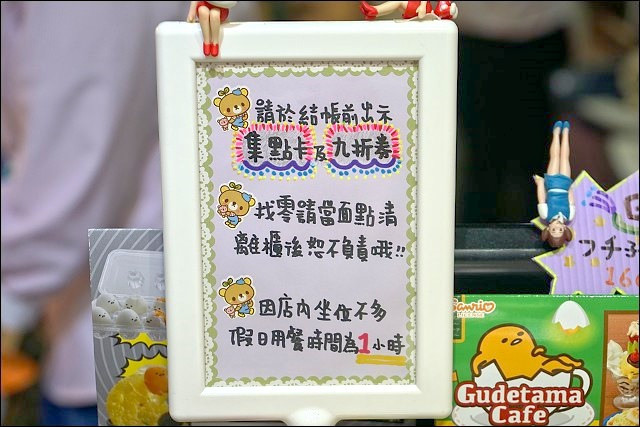 請於結帳前出示
集點卡及九折券
找零請當面點清
離櫃後恕不負責哦!!
因店內坐位不多
假日用餐時間為1小時
フチ子
Sanrio
Gudetama
Cafe